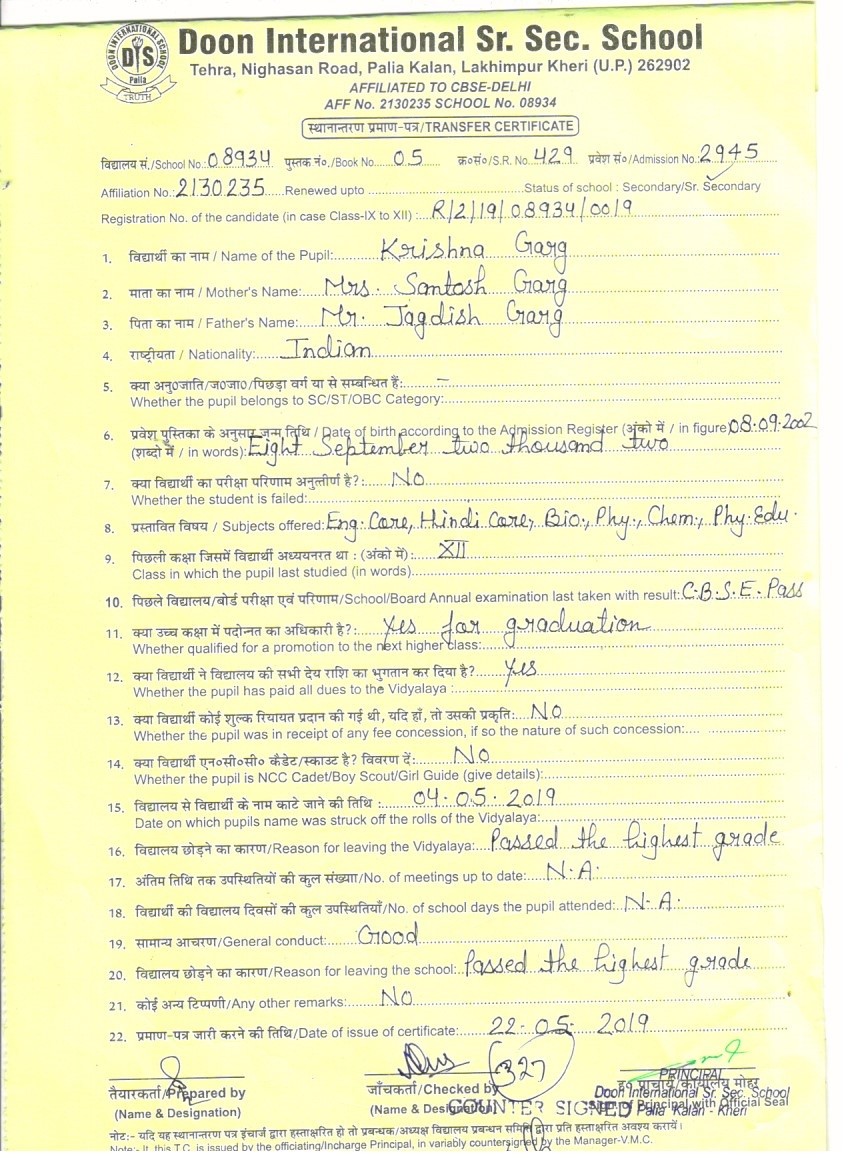 DOON INTERNATIONAL SCHOOL
DIS
Palia
TRUTH
Doon International Sr. Sec. School
Tehra, Nighasan Road, Palia Kalan, Lakhimpur Kheri (U.P.) 262902
AFFILIATED TO CBSE-DELHI
AFF No. 2130235 SCHOOL No. 08934
स्थानान्तरण प्रमाण-पत्र/TRANSFER CERTIFICATE
विद्यालय सं./School No.: 08934 पुस्तक नं०./Book No. 05 क्र०सं०/S.R. No. 429 प्रवेश सं०/Admission No.: 2945
Affiliation No.: 2130235 Renewed upto Status of school : Secondary/Sr. Secondary
Registration No. of the candidate (in case Class-IX to XII) : R/2/19/08934/0019
1. विद्यार्थी का नाम / Name of the Pupil: Krishna Garg
2. माता का नाम / Mother's Name: Mrs. Santosh Garg
3. पिता का नाम / Father's Name: Mr. Jagdish Garg
4. राष्ट्रीयता / Nationality: Indian
5. क्या अनु०जाति/ज०जा०/पिछड़ा वर्ग या से सम्बन्धित हैं: –
Whether the pupil belongs to SC/ST/OBC Category:
6. प्रवेश पुस्तिका के अनुसार जन्म तिथि / Date of birth according to the Admission Register (अंको में / in figure) 08.09.2002
(शब्दों में / in words): Eight September two thousand two
7. क्या विद्यार्थी का परीक्षा परिणाम अनुत्तीर्ण है?: No
Whether the student is failed:
8. प्रस्तावित विषय / Subjects offered: Eng. Core, Hindi Core, Bio., Phy., Chem., Phy. Edu.
9. पिछली कक्षा जिसमें विद्यार्थी अध्ययनरत था : (अंको में): XII
Class in which the pupil last studied (in words)
10. पिछले विद्यालय/बोर्ड परीक्षा एवं परिणाम/School/Board Annual examination last taken with result: C.B.S.E. Pass
11. क्या उच्च कक्षा में पदोन्नत का अधिकारी है?: Yes for graduation
Whether qualified for a promotion to the next higher class:
12. क्या विद्यार्थी ने विद्यालय की सभी देय राशि का भुगतान कर दिया है? Yes
Whether the pupil has paid all dues to the Vidyalaya :
13. क्या विद्यार्थी कोई शुल्क रियायत प्रदान की गई थी, यदि हाँ, तो उसकी प्रकृति: NO
Whether the pupil was in receipt of any fee concession, if so the nature of such concession:
14. क्या विद्यार्थी एन०सी०सी० कैडेट/स्काउट है? विवरण दें: NO
Whether the pupil is NCC Cadet/Boy Scout/Girl Guide (give details):
15. विद्यालय से विद्यार्थी के नाम काटे जाने की तिथि : 04.05.2019
Date on which pupils name was struck off the rolls of the Vidyalaya:
16. विद्यालय छोड़ने का कारण/Reason for leaving the Vidyalaya: Passed the highest grade
17. अंतिम तिथि तक उपस्थितियों की कुल संख्या/No. of meetings up to date: N.A.
18. विद्यार्थी की विद्यालय दिवसों की कुल उपस्थितियाँ/No. of school days the pupil attended: N.A.
19. सामान्य आचरण/General conduct: Good
20. विद्यालय छोड़ने का कारण/Reason for leaving the school: Passed the highest grade
21. कोई अन्य टिप्पणी/Any other remarks: NO
22. प्रमाण-पत्र जारी करने की तिथि/Date of issue of certificate: 22.05.2019
327
तैयारकर्ता/Prepared by
(Name & Designation)
जाँचकर्ता/Checked by
(Name & Designation)
COUNTER SIGNED
ह० प्राचार्य/कार्यालय मोहर
Sign of Principal with Official Seal
PRINCIPAL
Doon International Sr. Sec. School
Palia Kalan - Kheri
नोट:- यदि यह स्थानान्तरण पत्र इंचार्ज द्वारा हस्ताक्षरित हो तो प्रबन्धक/अध्यक्ष विद्यालय प्रबन्धन समिति द्वारा प्रति हस्ताक्षरित अवश्य करायें।
Note:- It, this T.C. is issued by the officiating/Incharge Principal, in variably countersigned by the Manager-V.M.C.